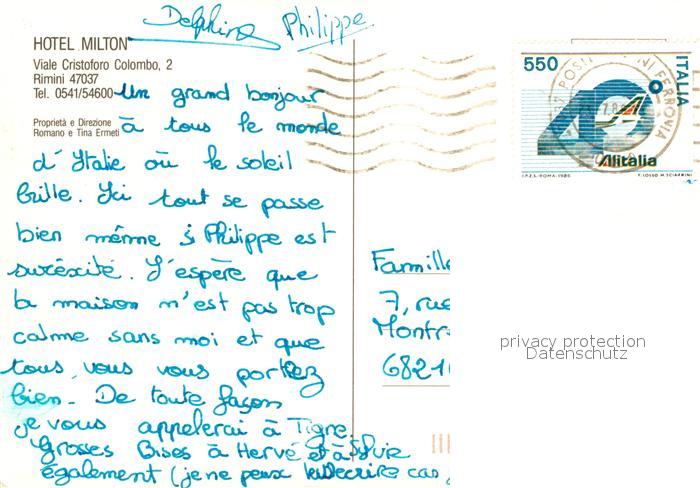 Delphine Philippe
HOTEL MILTON
Viale Cristoforo Colombo, 2
Rimini 47037
Tel. 0541/54600
Proprietà e Direzione
Romano e Tina Ermeti
Un grand bonjour
à tous le monde
d'Italie où le soleil
brille. Ici tout se passe
bien même si Philippe est
suréxité. J'espère que
la maison n'est pas trop
calme sans moi et que
tous vous vous portez
bien. De toute façon
je vous appelerai à Tigre.
Grosses Bises à Hervé et à Sylvie
également (je ne peux les décrire cas
550
ITALIA
Alitalia
I.P.Z.S.-ROMA-1986
POSTE
FERROVIA
Famille
7, rue
Montr
6821
privacy protection
Datenschutz